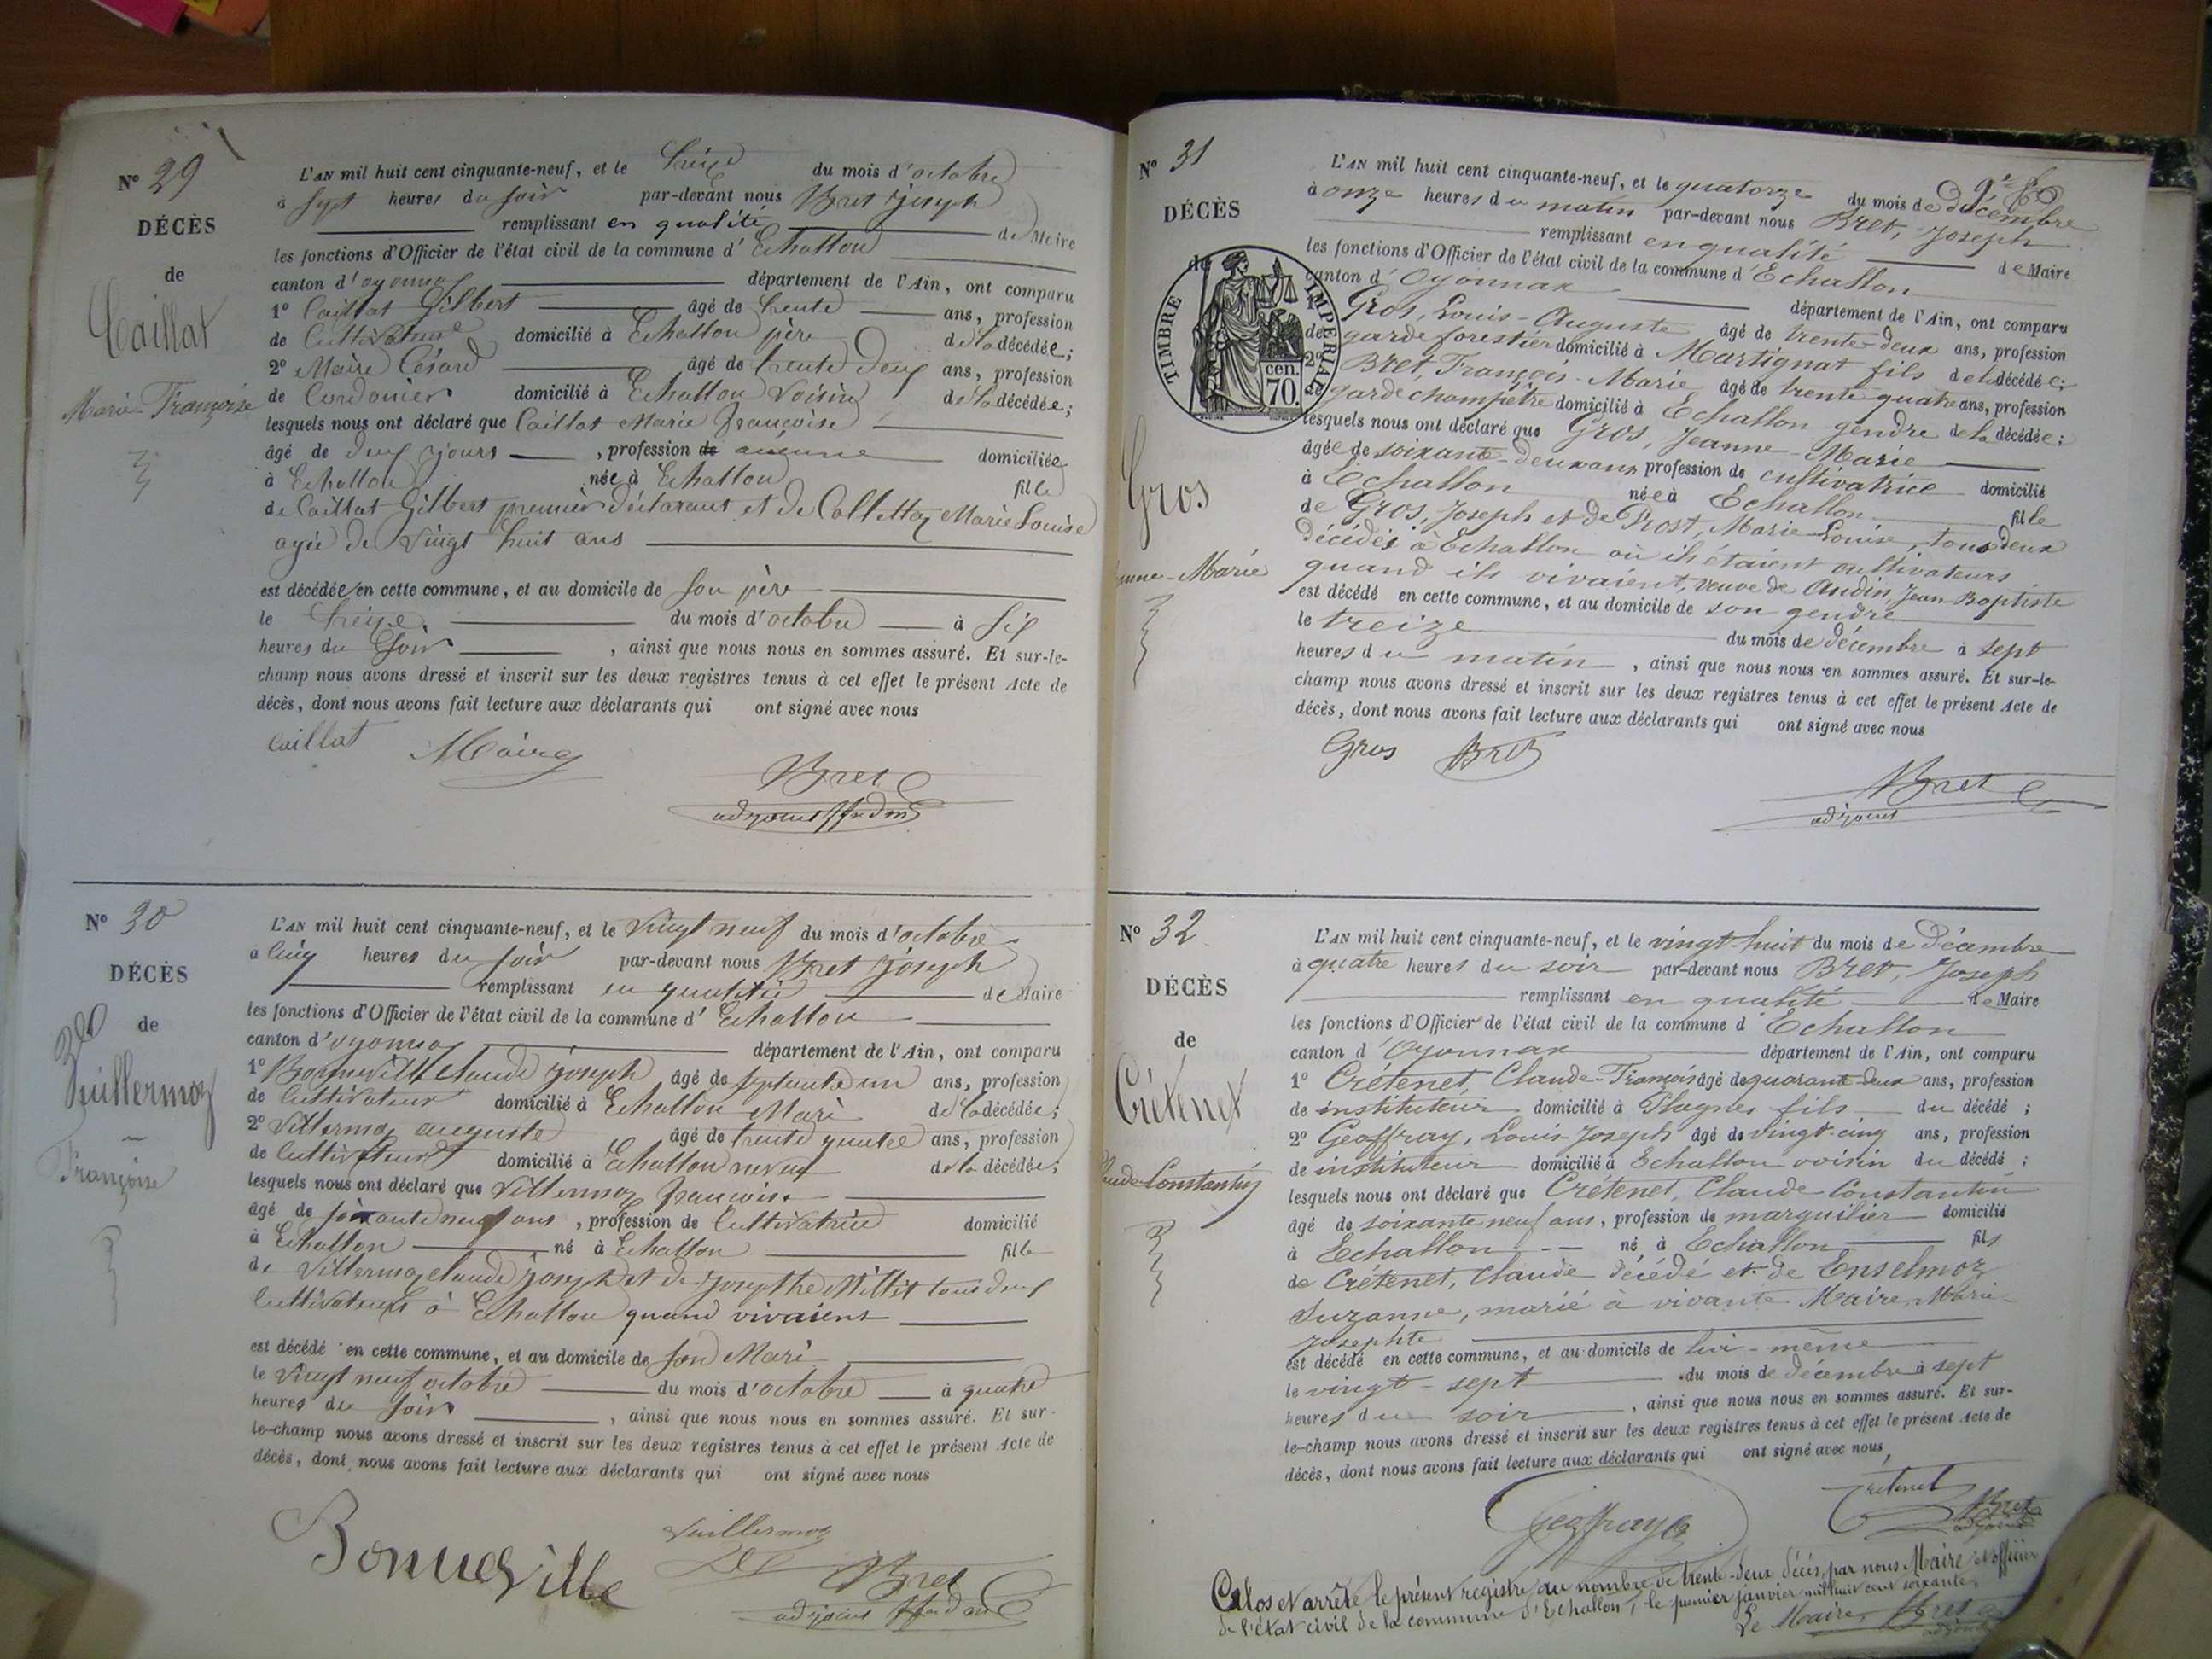 N° 29
DÉCÈS
de
Caillat
Marie Françoise
L'AN mil huit cent cinquante-neuf, et le treize du mois d'octobre
à sept heures du soir par-devant nous Bret Joseph
remplissant en qualité de Maire
les fonctions d'Officier de l'état civil de la commune d'Echallon
canton d'oyonnax département de l'Ain, ont comparu
1° Caillat Gilbert âgé de trente ans, profession
de Cultivateur domicilié à Echallon père de la décédée;
2° Maire César âgé de trente deux ans, profession
de Cordonier domicilié à Echallon Voisin de la décédée;
lesquels nous ont déclaré que Caillat Marie françoise
âgé de deux jours, profession de aucune domiciliée
à Echallon née à Echallon fille
de Caillat Gilbert premier déclarant et de Collettaz Marie Louise
agée de Vingt huit ans
est décédée en cette commune, et au domicile de son père
le treize du mois d'octobre à six
heures du Soir, ainsi que nous nous en sommes assuré. Et sur-le-
champ nous avons dressé et inscrit sur les deux registres tenus à cet effet le présent Acte de
décès, dont nous avons fait lecture aux déclarants qui ont signé avec nous
Caillat Maire
Bret
adjoint
N° 30
DÉCÈS
de
Vuillermoz
Françoise
L'AN mil huit cent cinquante-neuf, et le Vingt neuf du mois d'octobre
à Cinq heures du soir par-devant nous Bret Joseph
remplissant en qualité de Maire
les fonctions d'Officier de l'état civil de la commune d'Echallon
canton d'oyonnax département de l'Ain, ont comparu
1° Bonneville Claude Joseph âgé de septante un ans, profession
de Cultivateur domicilié à Echallon Mari de la décédée;
2° Villermoz auguste âgé de trente quatre ans, profession
de Cultivateur domicilié à Echallon neveu de la décédée;
lesquels nous ont déclaré que Villermoz françoise
âgé de soixante neuf ans, profession de Cultivatrice domicilié
à Echallon né à Echallon fille
de Villermoz Claude Joseph et de Josephte Millet tous deux
Cultivateurs à Echallon quand vivaient
est décédé en cette commune, et au domicile de son Mari
le Vingt neuf octobre du mois d'octobre à quatre
heures du soir, ainsi que nous nous en sommes assuré. Et sur-
le-champ nous avons dressé et inscrit sur les deux registres tenus à cet effet le présent Acte de
décès, dont nous avons fait lecture aux déclarants qui ont signé avec nous
Bonneville Vuillermoz
Bret
adjoint
N° 31
DÉCÈS
de
TIMBRE IMPÉRIAL
70 cen.
Gros
Marie
L'AN mil huit cent cinquante-neuf, et le quatorze du mois de décembre
à onze heures du matin par-devant nous Bret, Joseph
remplissant en qualité de Maire
les fonctions d'Officier de l'état civil de la commune d'Echallon
canton d'Oyonnax département de l'Ain, ont comparu
1° Gros, Louis-Auguste âgé de trente-deux ans, profession
de garde forestier domicilié à Martignat fils de la décédée;
2° Bret François-Marie âgé de trente-quatre ans, profession
de garde champêtre domicilié à Echallon gendre de la décédée;
lesquels nous ont déclaré que Gros, Jeanne-Marie
âgée de soixante-deux ans profession de cultivatrice domicilié
à Echallon née à Echallon fille
de Gros, Joseph et de Prost, Marie-Louise, tous deux
décédés à Echallon où ils étaient cultivateurs
quand ils vivaient, veuve de Audin, Jean Baptiste
est décédé en cette commune, et au domicile de son gendre
le treize du mois de décembre à sept
heures du matin, ainsi que nous nous en sommes assuré. Et sur-le-
champ nous avons dressé et inscrit sur les deux registres tenus à cet effet le présent Acte de
décès, dont nous avons fait lecture aux déclarants qui ont signé avec nous
Gros Bret
Bret
adjoint
N° 32
DÉCÈS
de
Crétenet
Claude-Constantin
L'AN mil huit cent cinquante-neuf, et le vingt-huit du mois de décembre
à quatre heures du soir par-devant nous Bret, Joseph
remplissant en qualité de Maire
les fonctions d'Officier de l'état civil de la commune d'Echallon
canton d'Oyonnax département de l'Ain, ont comparu
1° Crétenet, Claude-François âgé de quarante-deux ans, profession
de instituteur domicilié à Plagnes fils du décédé;
2° Geoffray, Louis-Joseph âgé de vingt-cinq ans, profession
de instituteur domicilié à Echallon voisin du décédé;
lesquels nous ont déclaré que Crétenet, Claude-Constantin
âgé de soixante neuf ans, profession de marguilier domicilié
à Echallon né à Echallon fils
de Crétenet, Claude décédé et de Enselmoz
Suzanne, marié à vivante Maire, Marie-
Josephte
est décédé en cette commune, et au domicile de lui-même
le vingt-sept du mois de décembre à sept
heures du soir, ainsi que nous nous en sommes assuré. Et sur-
le-champ nous avons dressé et inscrit sur les deux registres tenus à cet effet le présent Acte de
décès, dont nous avons fait lecture aux déclarants qui ont signé avec nous,
Geoffray Cretenet Bret
adjoint
Clos et arrêté le présent registre au nombre de trente-deux décès, par nous Maire et officier
de l'état civil de la commune d'Echallon, le premier janvier mil huit cent soixante.
Le Maire, Bret
adjoint